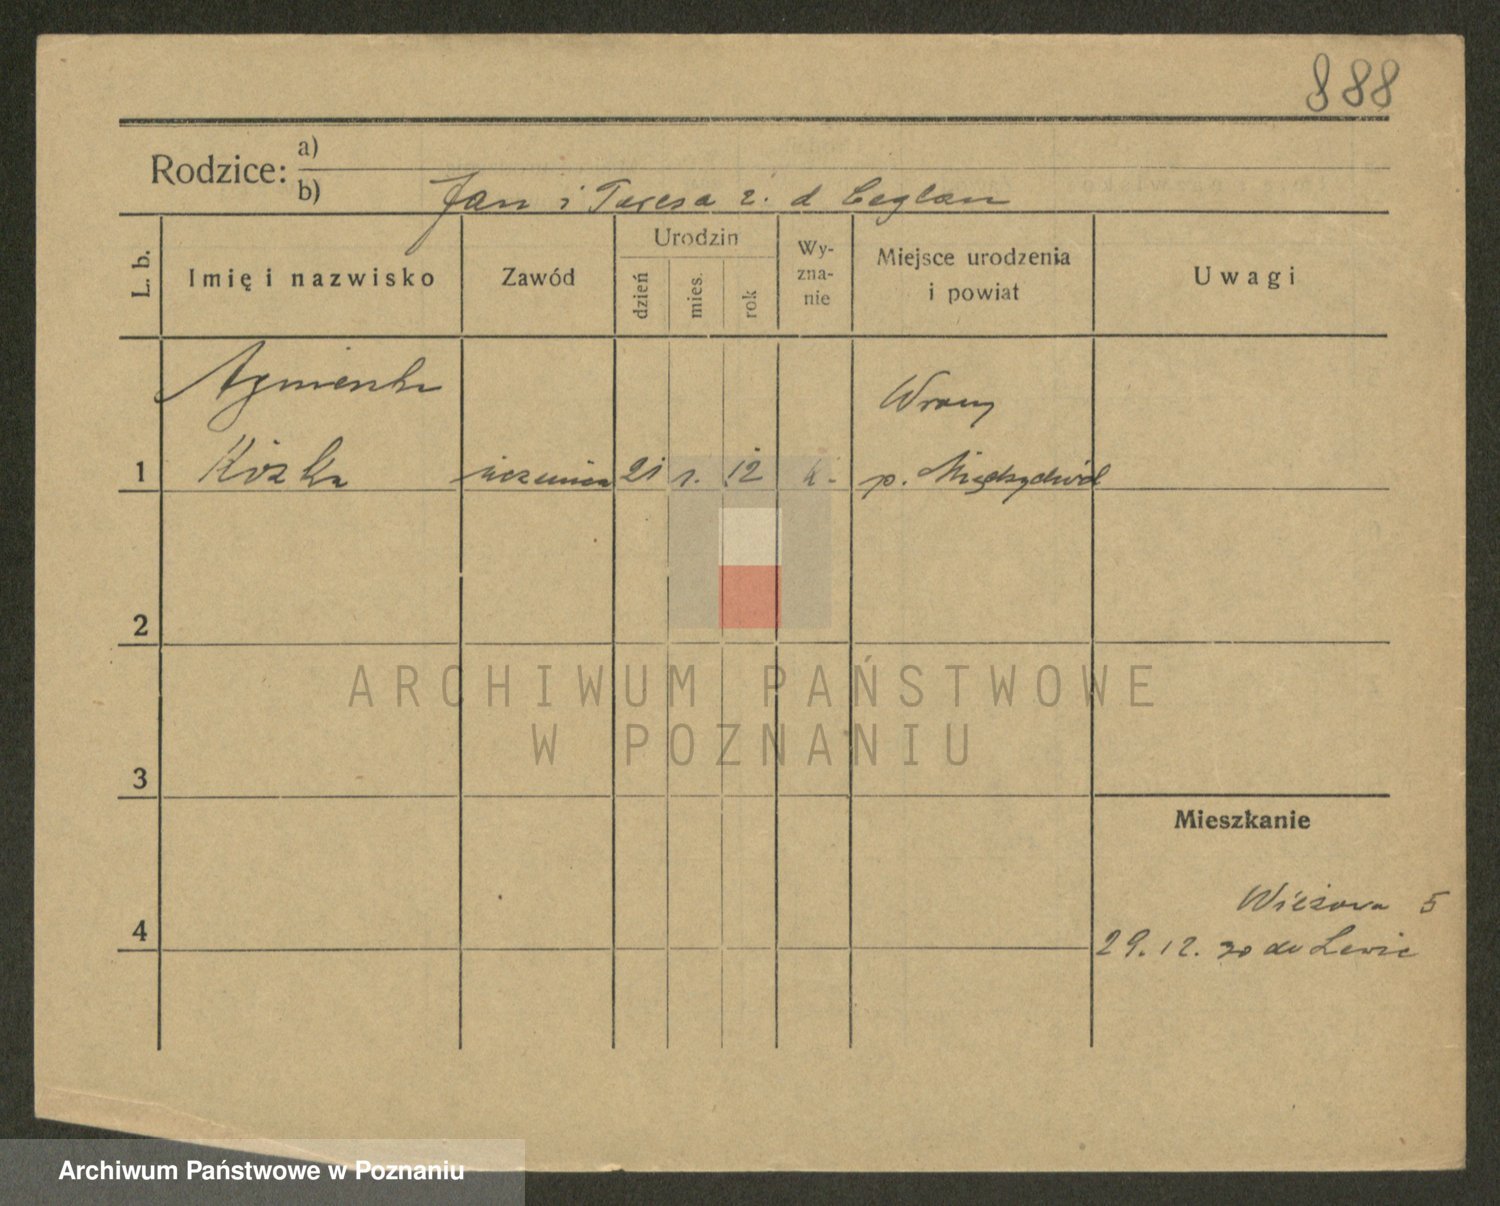 888
Rodzice: a)
b) Jan i Teresa z. d Ceglan
L. b.
Imię i nazwisko
Zawód
Urodzin
dzień
mies.
rok
Wy-
zna-
nie
Miejsce urodzenia
i powiat
Uwagi
Agnieszka
Wrony
1 Kózka uczenica 21 1. 12 k. p. Międzychód
2
ARCHIWUM PAŃSTWOWE
W POZNANIU
3
Mieszkanie
Wieżowa 5
4
29. 12. 30 do
Archiwum Państwowe w Poznaniu